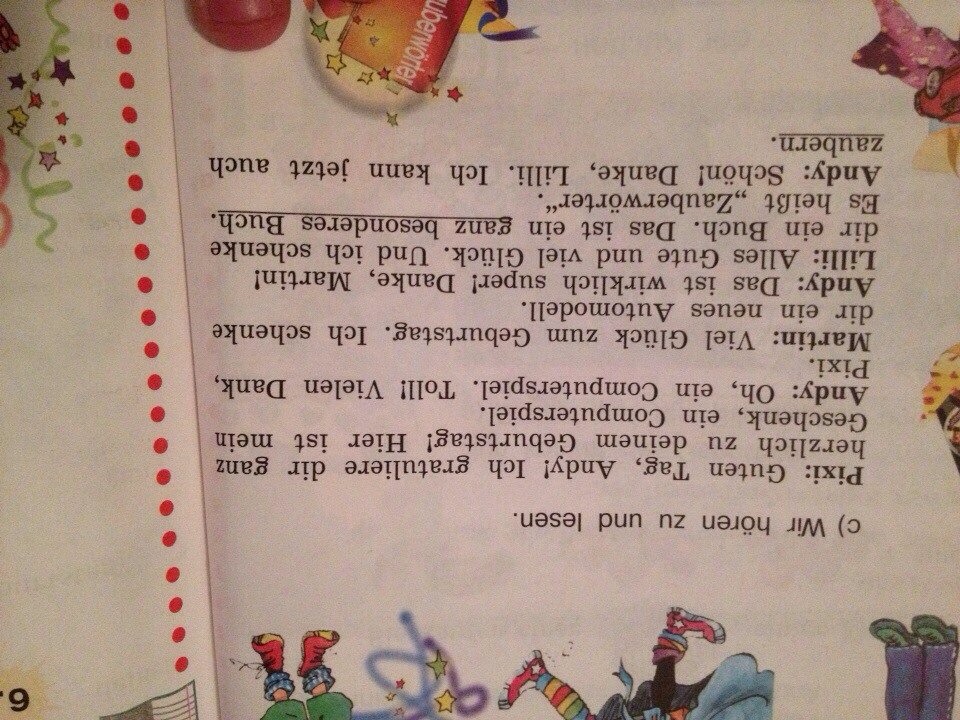 c) Wir hören zu und lesen.
Pixi: Guten Tag, Andy! Ich gratuliere dir ganz
herzlich zu deinem Geburtstag! Hier ist mein
Geschenk, ein Computerspiel.
Andy: Oh, ein Computerspiel. Toll! Vielen Dank,
Pixi.
Martin: Viel Glück zum Geburtstag. Ich schenke
dir ein neues Automodell.
Andy: Das ist wirklich super! Danke, Martin!
Lilli: Alles Gute und viel Glück. Und ich schenke
dir ein Buch. Das ist ein ganz besonderes Buch.
Es heißt „Zauberwörter“.
Andy: Schön! Danke, Lilli. Ich kann jetzt auch
zaubern.
auberwörter